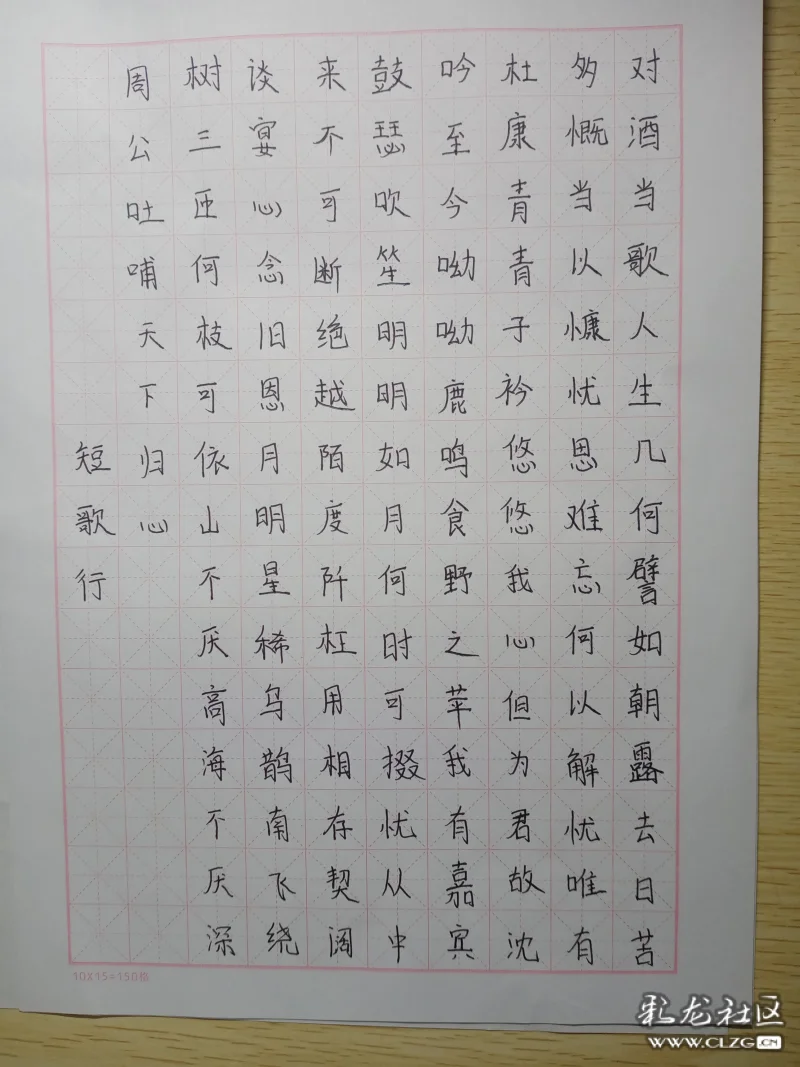 对酒当歌人生几何譬如朝露去日苦
多慨当以慷忧思难忘何以解忧唯有
杜康青青子衿悠悠我心但为君故沈
吟至今呦呦鹿鸣食野之苹我有嘉宾
鼓瑟吹笙明明如月何时可掇忧从中
来不可断绝越陌度阡枉用相存契阔
谈宴心念旧恩月明星稀乌鹊南飞绕
树三匝何枝可依山不厌高海不厌深
周公吐哺天下归心
短歌行
10X15=150格
彩龙社区
WWW.CLZG.CN